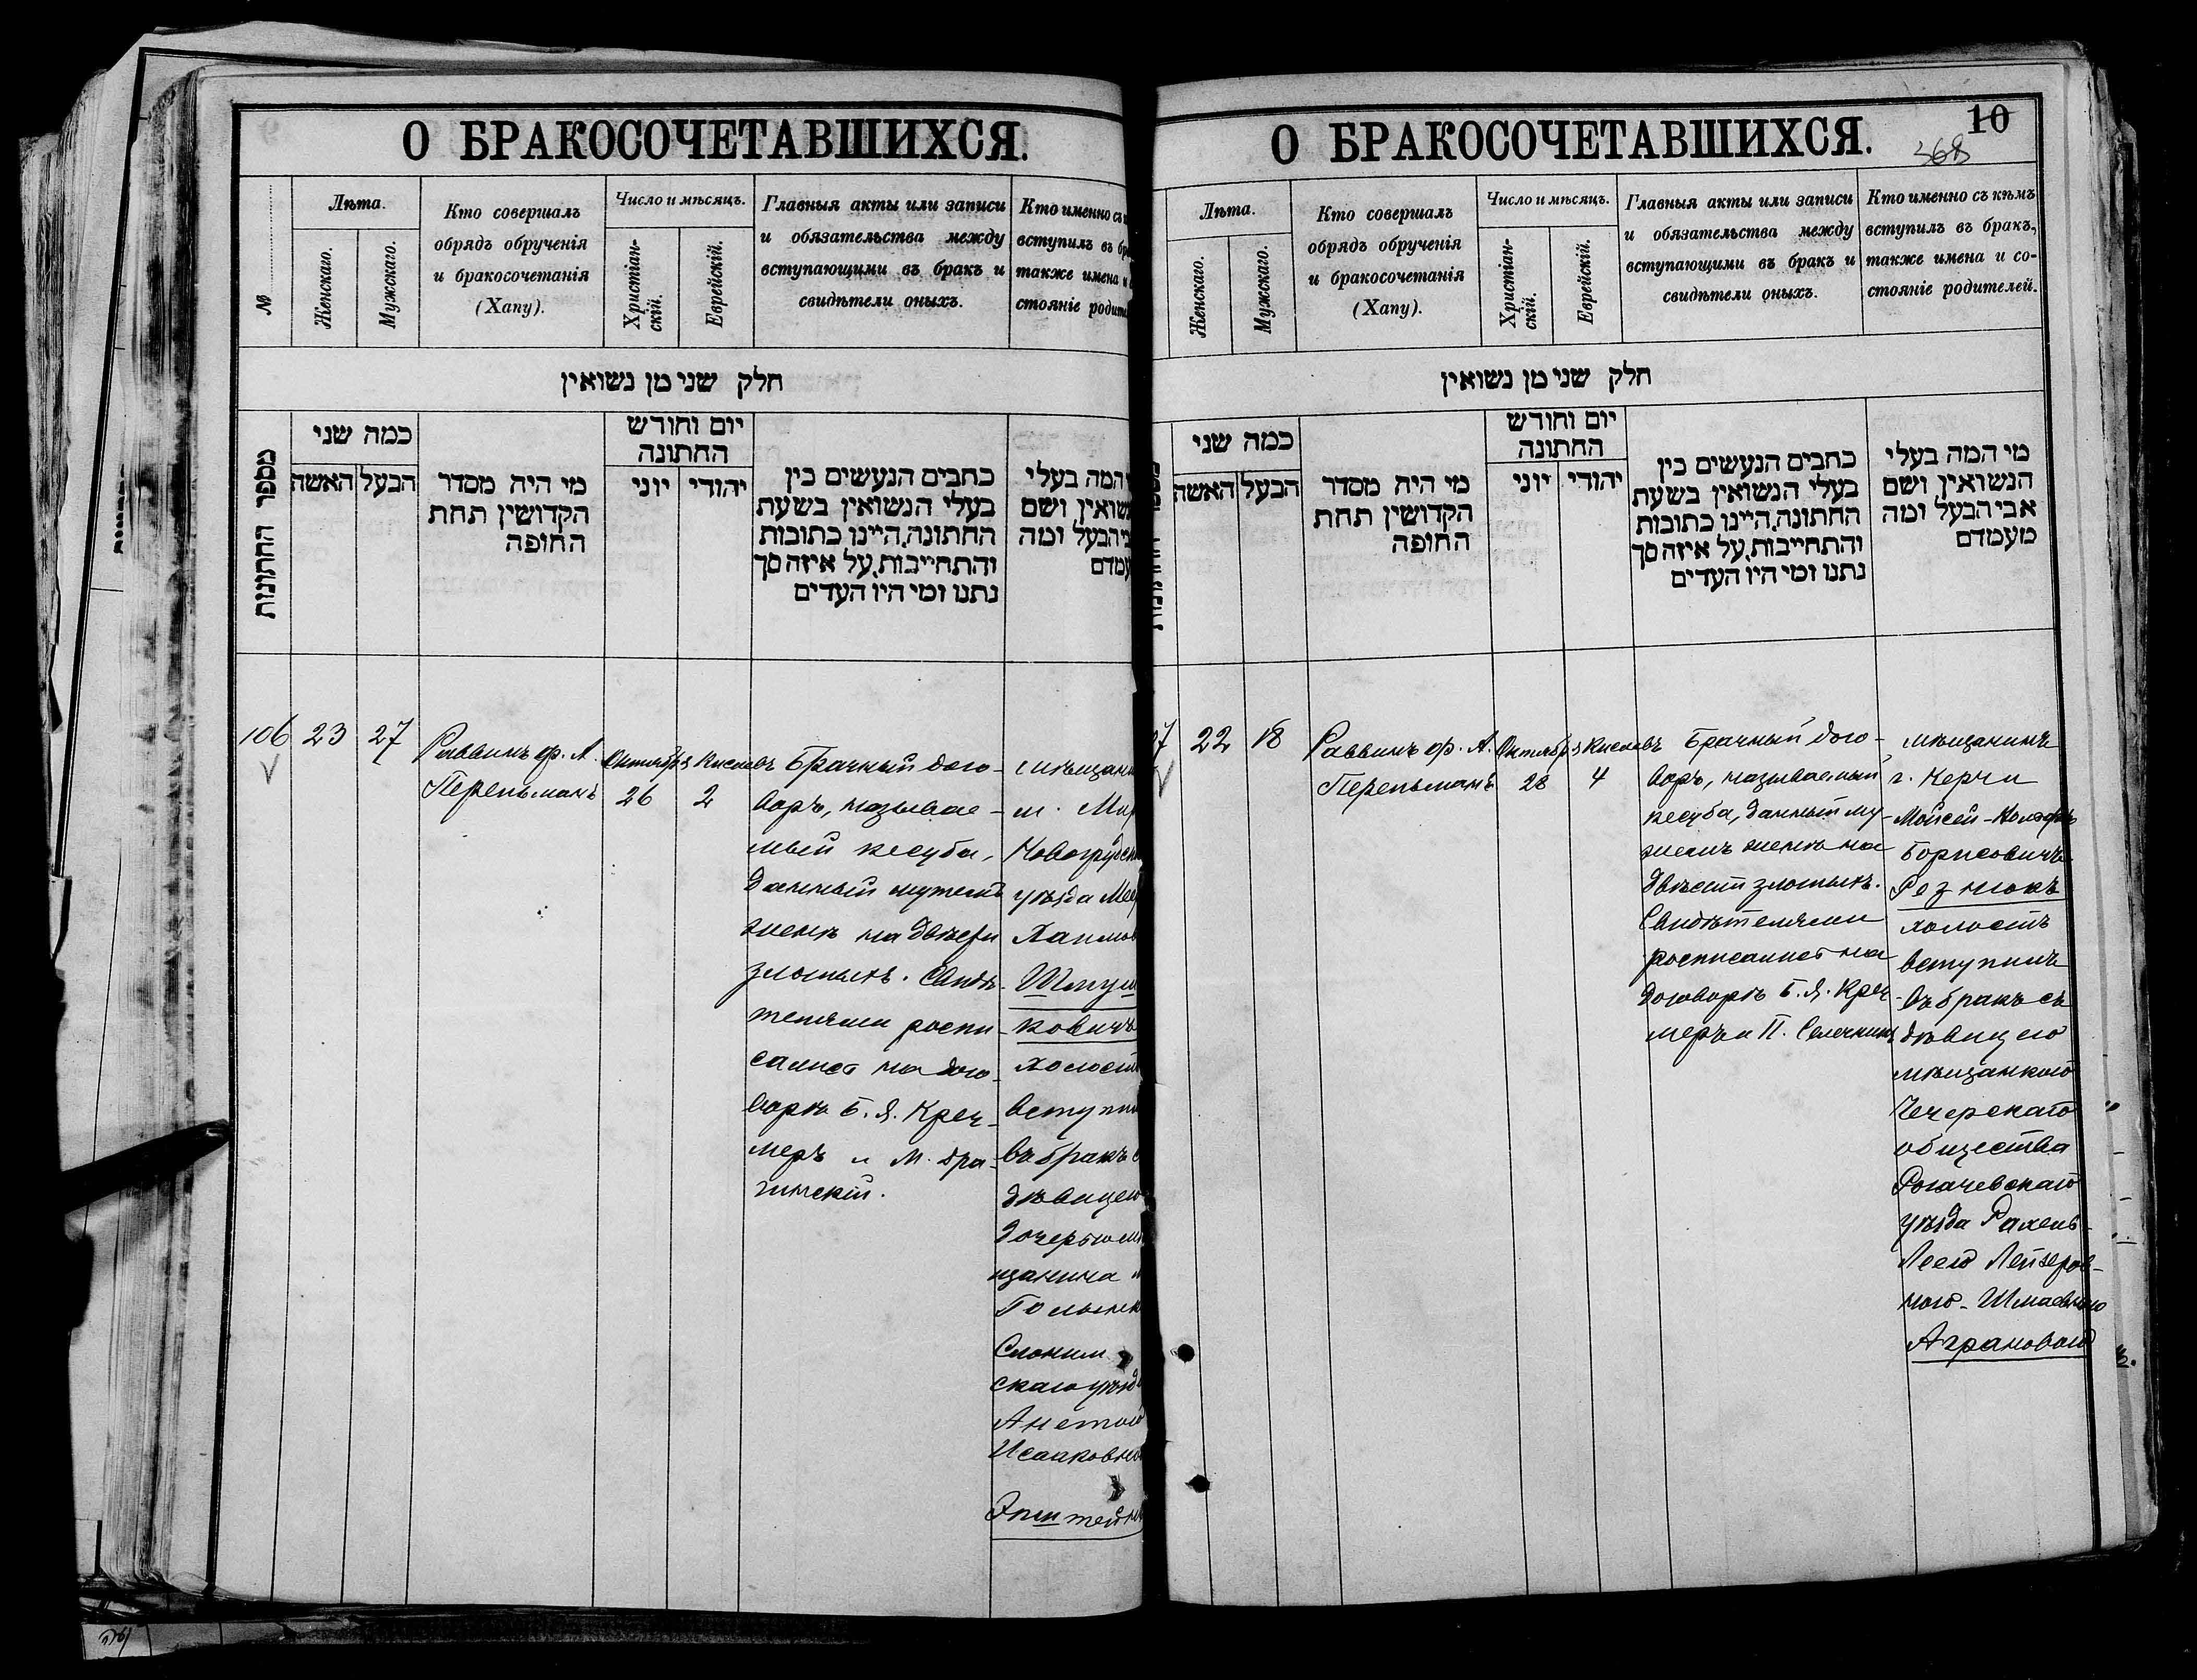 О БРАКОСОЧЕТАВШИХСЯ.
№
Лѣта.
Женскаго.
Мужскаго.
Кто совершалъ
обрядъ обрученія
и бракосочетанія
(Хапу).
Число и мѣсяцъ.
Христіан-
скій.
Еврейскій.
Главныя акты или записи
и обязательства между
вступающими въ бракъ и
свидѣтели оныхъ.
Кто именно съ
вступилъ въ
также имена и
стояніе
חלק שני מן נשואין
מספר החתונות
כמה שני
האשה
הבעל
מי היה מסדר
הקדושין תחת
החופה
יום וחודש
החתונה
יוני
יהודי
כתבים הנעשים בין
בעלי הנשואין בשעת
החתונה, היינו כתובות
והתחייבות, על איזה סך
נתנו ומי היו העדים
המה בעלי
ושם
ומה
106
23
27
Раввинъ ф. А.
Перельманъ
Октября
26
Кислевъ
2
Брачный дого-
воръ, называе-
мый кесуба,
данный мужемъ
женѣ на двѣсти
злотыхъ. Свидѣ-
телями роспи-
салися на дого-
ворѣ Б. Я. Креч-
меръ и М.
м.
Новогрудск
уѣзда
Хаимов
Шмуш
ковичъ
холост
вступи
въ бракъ
дѣвицею
дочерью мѣ
щанина
Слоним
скаго уѣзд
Анетою
Исааковно
Эпштейн
О БРАКОСОЧЕТАВШИХСЯ.
10
368
Лѣта.
Женскаго.
Мужскаго.
Кто совершалъ
обрядъ обрученія
и бракосочетанія
(Хапу).
Число и мѣсяцъ.
Христіан-
скій.
Еврейскій.
Главныя акты или записи
и обязательства между
вступающими въ бракъ и
свидѣтели оныхъ.
Кто именно съ кѣмъ
вступилъ въ бракъ,
также имена и со-
стояніе родителей.
חלק שני מן נשואין
כמה שני
האשה
הבעל
מי היה מסדר
הקדושין תחת
החופה
יום וחודש
החתונה
יוני
יהודי
כתבים הנעשים בין
בעלי הנשואין בשעת
החתונה, היינו כתובות
והתחייבות, על איזה סך
נתנו ומי היו העדים
מי המה בעלי
הנשואין ושם
אבי הבעל ומה
מעמדם
7
22
18
Раввинъ ф. А.
Перельманъ
Октября
28
Кислевъ
4
Брачный дого-
воръ, называемый
кесуба, данный му-
жемъ женѣ на
двѣсти злотыхъ.
Свидѣтелями
росписалися на
договорѣ Б. Я. Креч-
меръ и П.
мѣщанинъ
г. Керчи
Мойсей-
Борисовичъ
Резникъ
холостъ
вступилъ
въ бракъ съ
дѣвицею
мѣщанкою
Чечерскаго
общества
Рогачевскаго
уѣзда Рахель-
Леею Лейзеров-
ною-Шмаевною
Аграновою